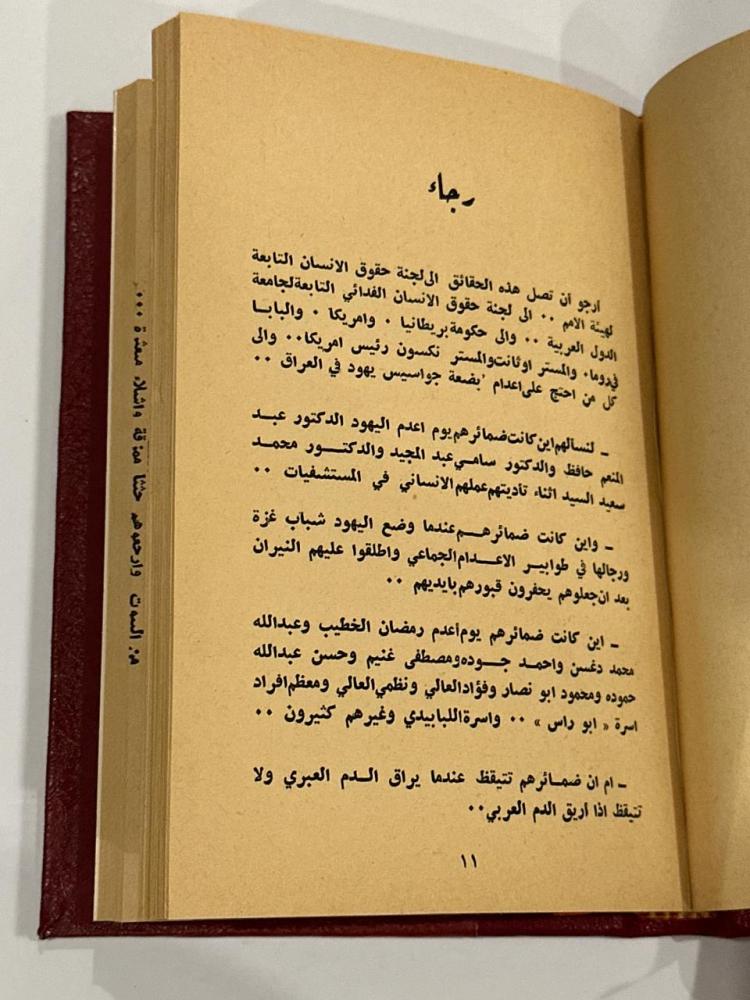 رجاء
ارجو ان تصل هذه الحقائق الى لجنة حقوق الانسان التابعة
لهيئة الامم ٠٠ الى لجنة حقوق الانسان الفدائي التابعة لجامعة
الدول العربية ٠٠ والى حكومة بريطانيا ٠ وامريكا ٠ والبابا
في روما٠ والمستر اوثانت والمستر نكسون رئيس امريكا٠٠ والى
كل من احتج على اعدام بضعة جواسيس يهود في العراق ٠٠
ـ لنسالهم اين كانت ضمائرهم يوم اعدم اليهود الدكتور عبد
المنعم حافظ والدكتور سامي عبد المجيد والدكتور محمد
سعيد السيد اثناء تأديتهم عملهم الانساني في المستشفيات ٠٠
ـ واين كانت ضمائرهم عندما وضع اليهود شباب غزة
ورجالها في طوابير الاعدام الجماعي واطلقوا عليهم النيران
بعد ان جعلوهم يحفرون قبورهم بايديهم ٠٠
ـ اين كانت ضمائرهم يوم أعدم رمضان الخطيب وعبدالله
محمد دغسن واحمد جوده ومصطفى غنيم وحسن عبدالله
حموده ومحمود ابو نصار وفؤاد العالي ونظمي العالي ومعظم افراد
اسرة « ابو راس » ٠٠ واسرة اللبابيدي وغيرهم كثيرون ٠٠
ـ ام ان ضمائرهم تتيقظ عندما يراق الدم العبري ولا
تتيقظ اذا اريق الدم العربي٠٠
١١
من البيوت وارجعوهم جثثا ممزقة واشلاء مبعثرة ٠٠٠